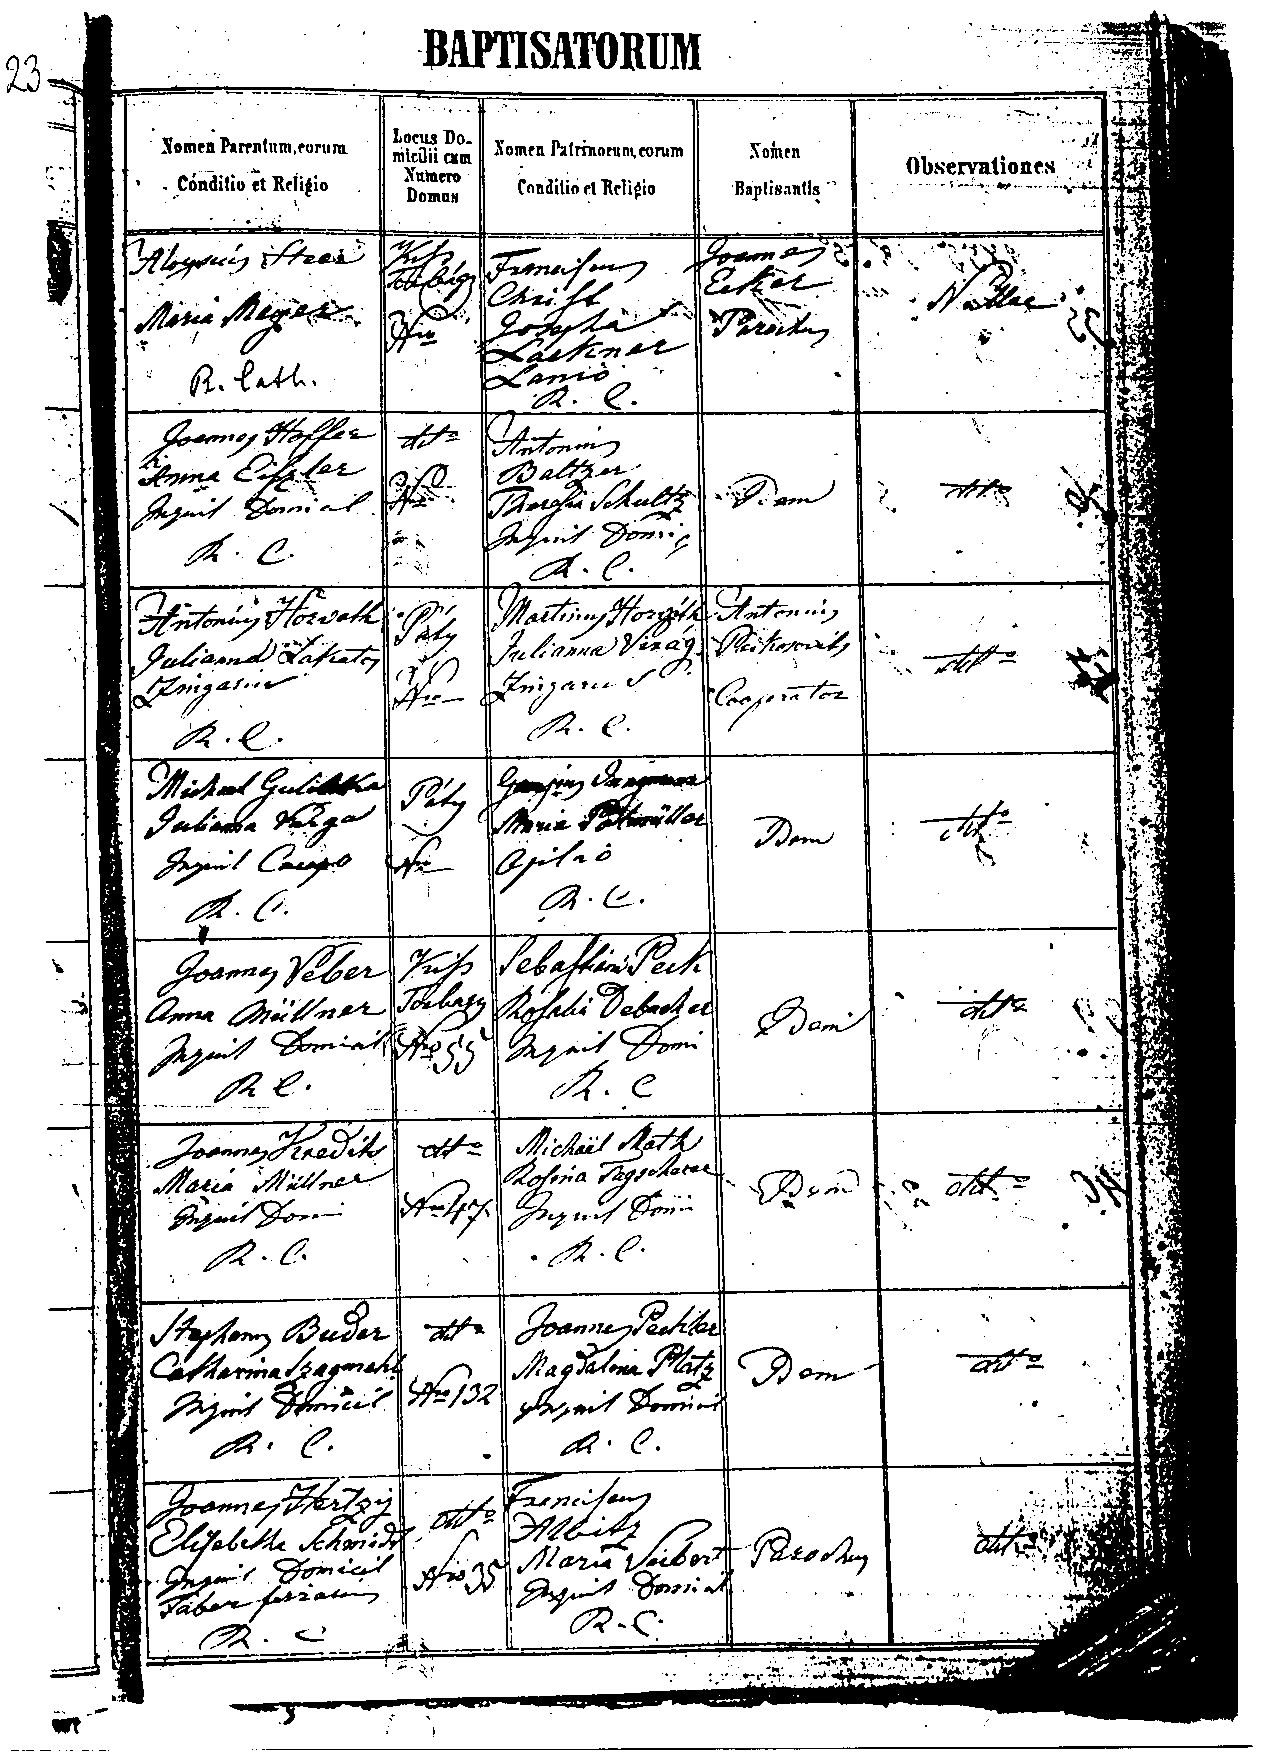 23
BAPTISATORUM
Nomen Parentum, eorum
Conditio et Religio
Locus Do-
micilii cum
Numero
Domus
Nomen Patrinorum, eorum
Conditio et Religio
Nomen
Baptisantis
Observationes
Aloysius
Maria Mayer
R. Cath.
Kiss
Torbágy
Nro
Franciscus
Christ
Josepha
Lackner
Lanio
R. C.
Joannes
Ecker
Parochus
Nullae
Joannes Hoffer
Anna
Inquil Domicil
R. C.
dtto
Nro
Antonius
Baltzer
Theresia Schultz
Inquil Domic
R. C.
Idem
dtto
Antonius Horvath
Julianna Lakatos
Zingarus
R. C.
Páty
Nro
Martinus Horváth
Julianna Virág
Zingarus
R. C.
Antonius
Cooperator
dtto
Michael
Julianna Varga
Inquil
R. C.
Páty
Nro
Maria
Opilio
R. C.
Idem
dtto
Joannes Veber
Anna Müllner
Inquil Domicil
R C.
Kiss
Torbágy
Nro 55
Sebastian Peck
Rosalia Debacher
Inquil Domi
R. C
Idem
dtto
Joannes Kredits
Maria Müllner
Inquil Domi
R. C.
dtto
Nro 47.
Michaël Math
Rosina
Inquil Domi
R. C.
Idem
dtto
Stephanus Buder
Catharina
Inquil Domicil
R. C.
dtto
Nro 132
Joannes Pechler
Magdalena Platz
Inquil Domicil
R. C.
Idem
dtto
Joannes Hertzig
Elisabetha Schmidt
Inquil Domicil
Faber ferrarius
R. C
dtto
Nro 35
Franciscus
Albitz
Maria Seibert
Inquil Domicil
R. C.
Parochus
dtto